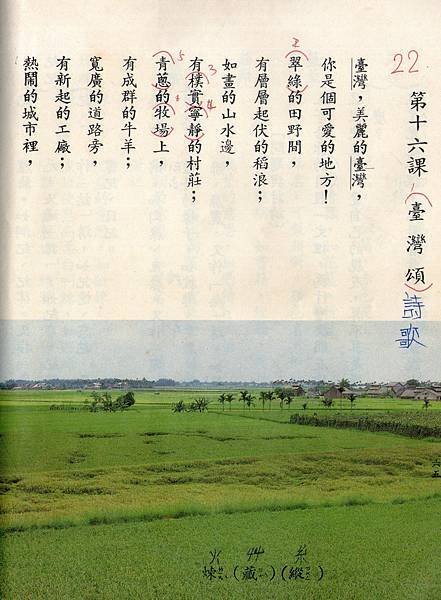 22.
第十六課　臺灣頌
詩歌
臺灣，美麗的臺灣，
你是個可愛的地方！
翠綠的田野間，
有層層起伏的稻浪；
如畫的山水邊，
有樸實寧靜的村莊；
青蔥的牧場上，
有成群的牛羊；
寬廣的道路旁，
有新起的工廠；
熱鬧的城市裡，
1
2
3
4
5
6
火　艸　糸
煉(藏)(縱)